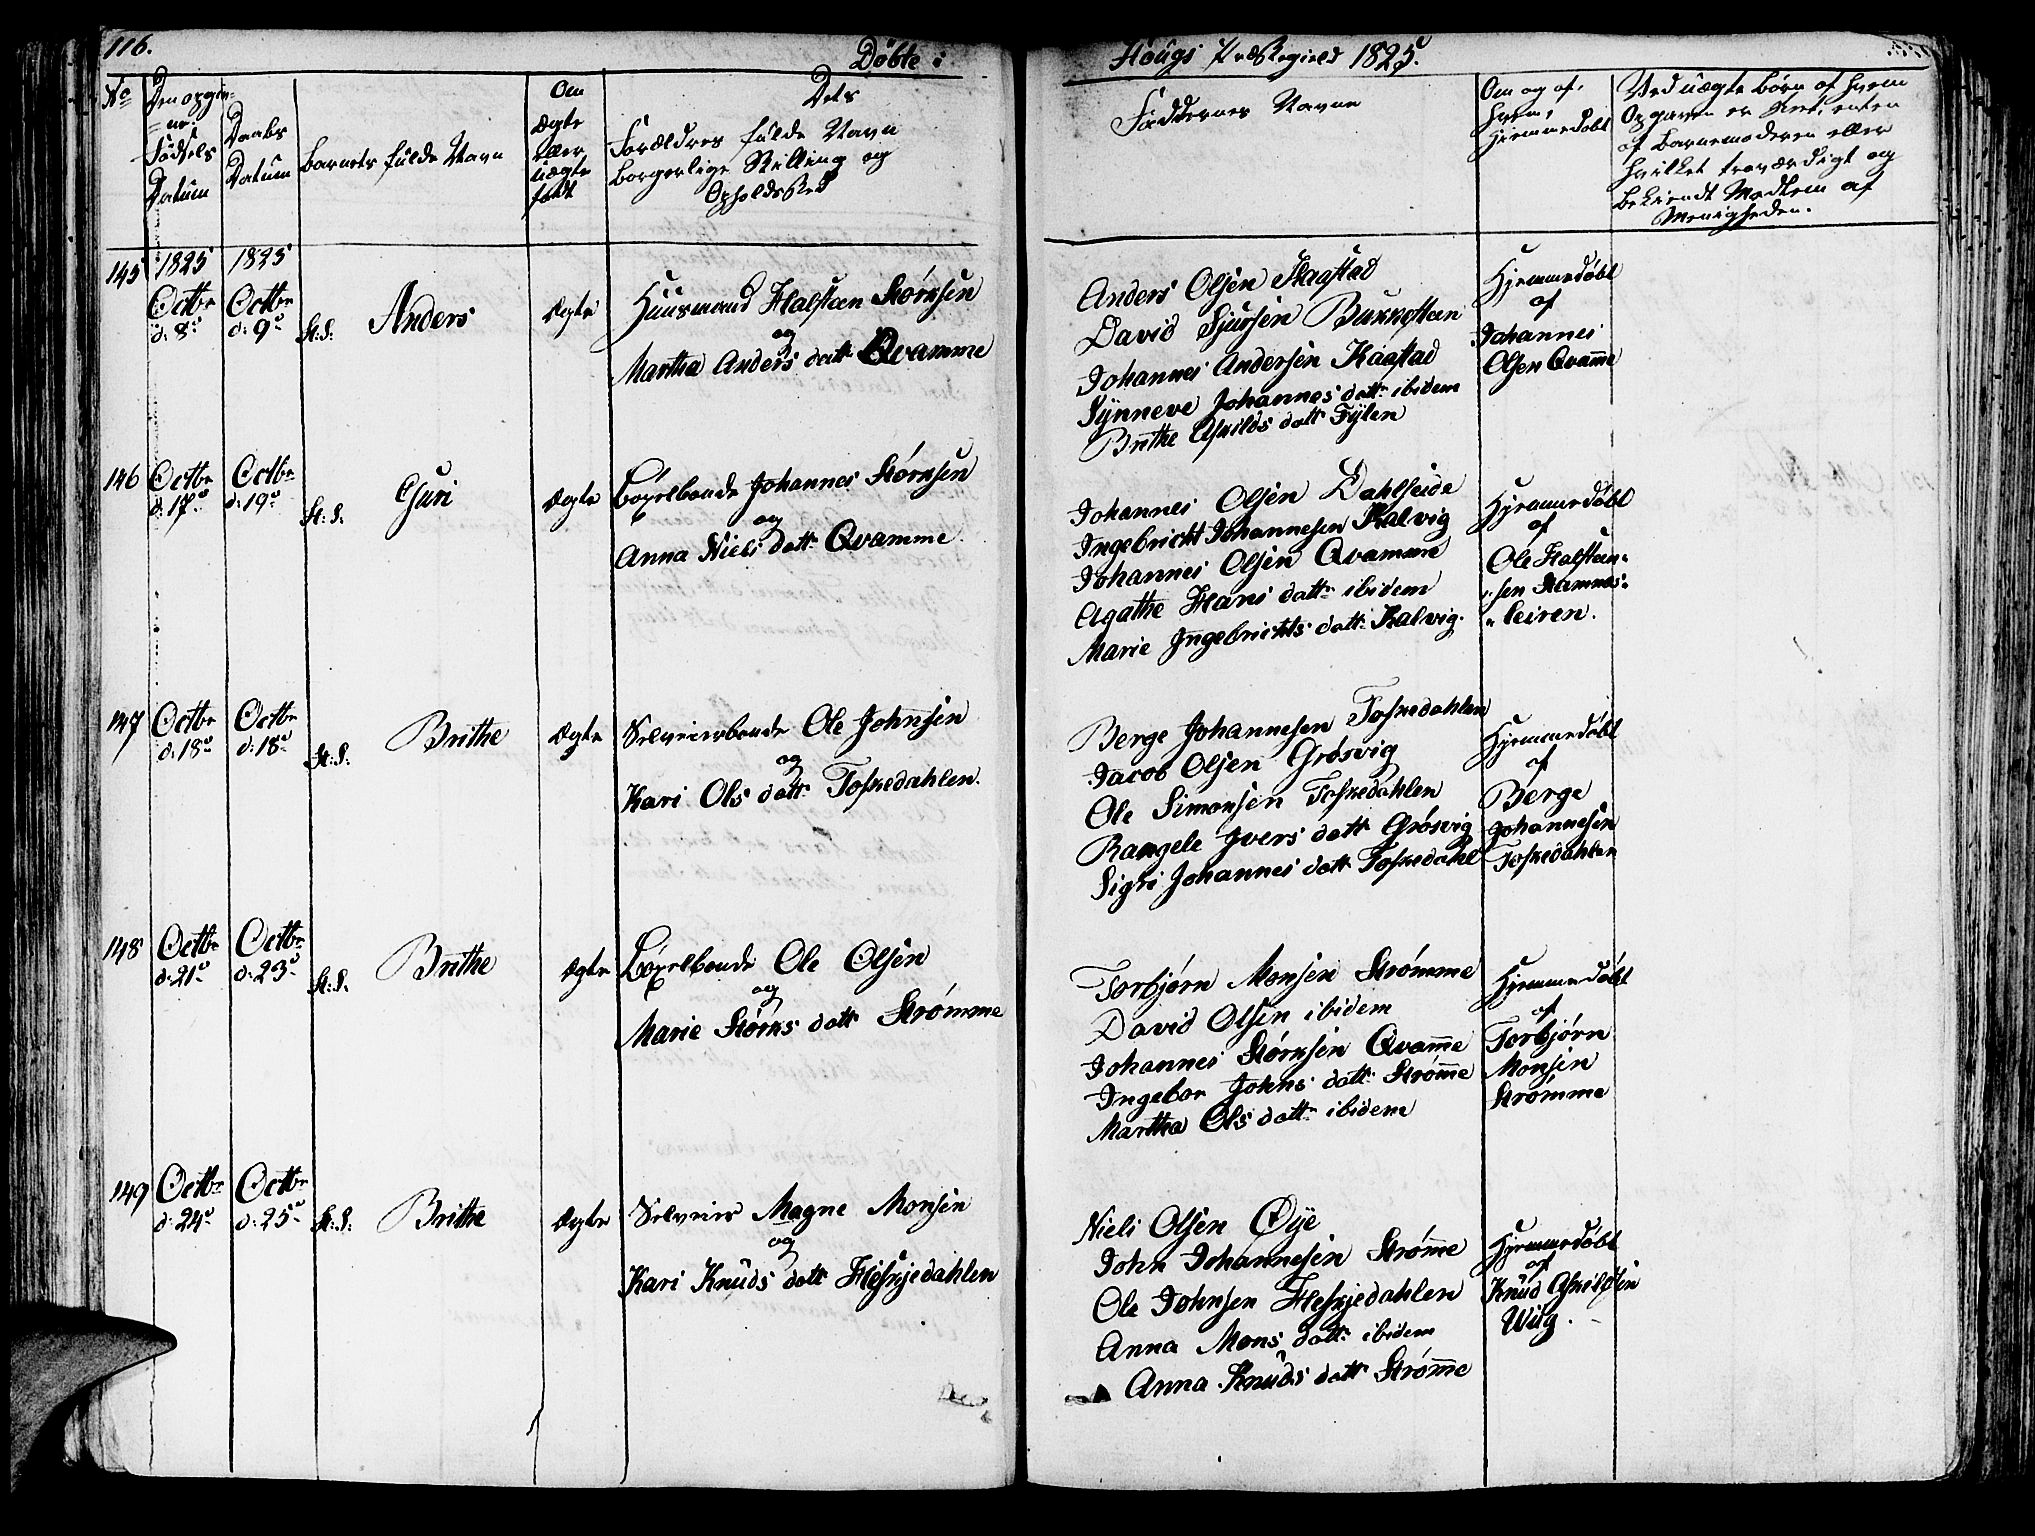 116.
Döbte i
Hougs Præstegield 1825.
No
Den opgiv=
=ne
Födsels
Datum
Daabs
Datum
Barnets fulde Navn
Om
Ægte
eller
uægte
födt
Dets
Forældres fulde Navn
borgerlige Stilling og
Opholdsted
Faddernes Navne
Om og af
hvem
hjemmedöbt
Ved uægte börn af hvem
Opgaven er skeet, enten
af Barnemoderen eller
hvilket troværdigt og
bekiendt Medlem af
Menigheden.
145
1825
Octbr
d: 8de
1825
Octbr
d: 9de
St: S:
Anders
Ægte
Huusmand Halsteen Störksen
og
Martha Anders datt: Qvamme
Anders Olsen Kaastad
David Sjursen
Johannes Andersen Kaastad
Synneve Johannes datt: ibidem
Brithe Askilds datt: Tylen
Hjemmedöbt
af
Johannes
Olsen Qvam̄e
146
Octbr
d: 17de
Octbr
d: 19de
St: S:
Guri
Ægte
Böxelbonde Johannes Störksen
og
Anna Niels datt: Qvamme.
Johannes Olsen Dahlseide
Ingebricht Johannesen Kalvig
Johannes Olsen Qvamme
Agathe Hans datt: ibidem
Marie Ingebrichts datt: Kalvig.
Hjemmedöbt
af
Ole Halsteen=
=sen Hammes=
=leiren.
147
Octbr
d: 18de
Octbr
d: 18de
St: S:
Brithe
Ægte
Selveierbonde Ole Johnsen
og
Kari Ols datt: Toskedahlen.
Berge Johannesen Toskedahlen
Jacob Olsen Grösvig
Ole Simonsen Toskedahlen
Rangele Ivers datt: Grösvig
Sigri Johannes datt: Toskedahl
Hjemmedöbt
af
Berge
Johannesen
Toskedahlen
148
Octbr
d: 21de
Octbr
d: 23de
St: S:
Brithe
Ægte
Böxelbonde Ole Olsen
og
Marie Störks datt: Strömme
Torbjörn Monsen Strömme
David Olsen ibidem
Johannes Störksen Qvam̄e
Ingebor Johns datt: Ström̄e
Martha Ols datt: ibidem
Hjemmedöbt
af
Torbjörn
Monsen
Strömme
149
Octbr
d: 24de
Octbr
d: 25de
St: S:
Brithe
Ægte
Selveier Magne Monsen
og
Kari Knuds datt: Heskjedahlen
Niels Olsen Öye
John Johannesen Ström̄e
Ole Johnsen Heskjedahlen
Anna Mons datt: ibidem
Anna Knuds datt: Ström̄e
Hjemmedöbt
af
Knud Askildsen
Wiig.